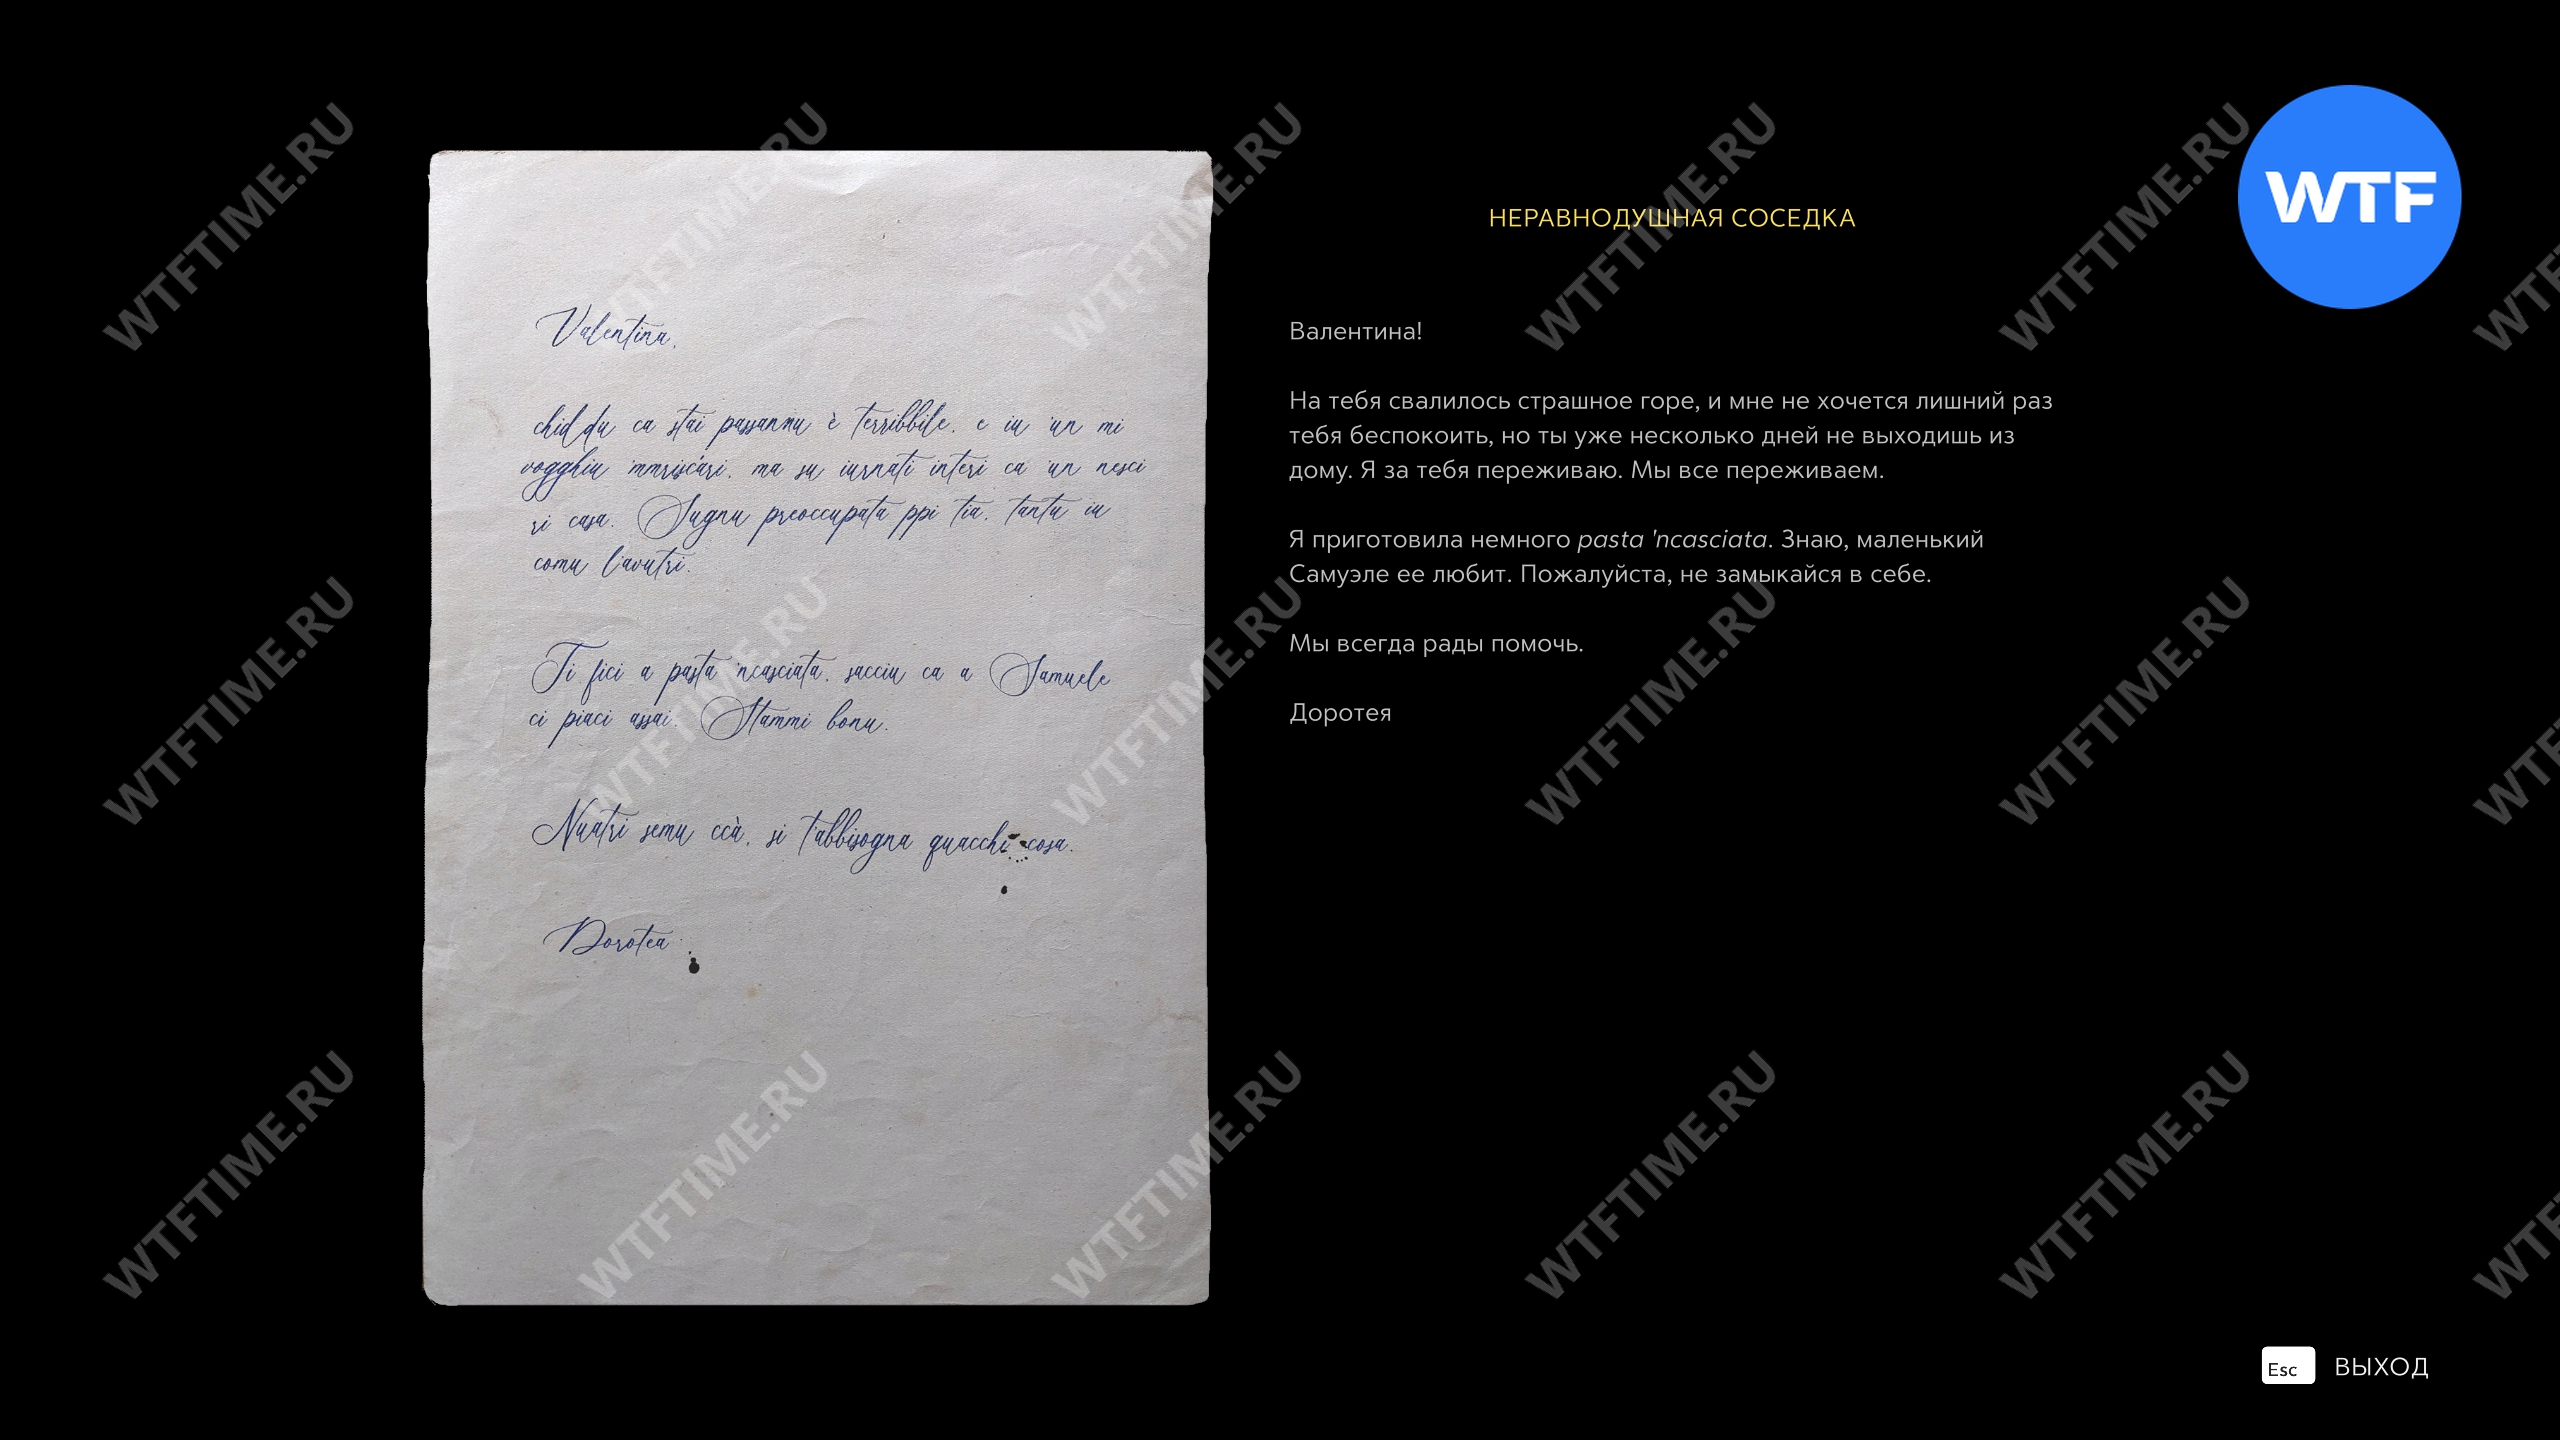 Valentina,
chiddu ca stai passannu è terribbile, e iu 'un mi
vogghiu 'mmriscàri, ma su iurnati interi ca 'un nesci
ri casa. Sugnu preoccupata ppi tia, tantu iu
comu l'avutri.
Ti fici a pasta 'ncasciata, sacciu ca a Samuele
ci piaci assai. Stammi bonu.
Nuatri semu ccà, si t'abbisogna quacchi cosa.
Dorotea
НЕРАВНОДУШНАЯ СОСЕДКА
Валентина!
На тебя свалилось страшное горе, и мне не хочется лишний раз
тебя беспокоить, но ты уже несколько дней не выходишь из
дому. Я за тебя переживаю. Мы все переживаем.
Я приготовила немного pasta 'ncasciata. Знаю, маленький
Самуэле ее любит. Пожалуйста, не замыкайся в себе.
Мы всегда рады помочь.
Доротея
WTF
Esc ВЫХОД
WTFTIME.RU